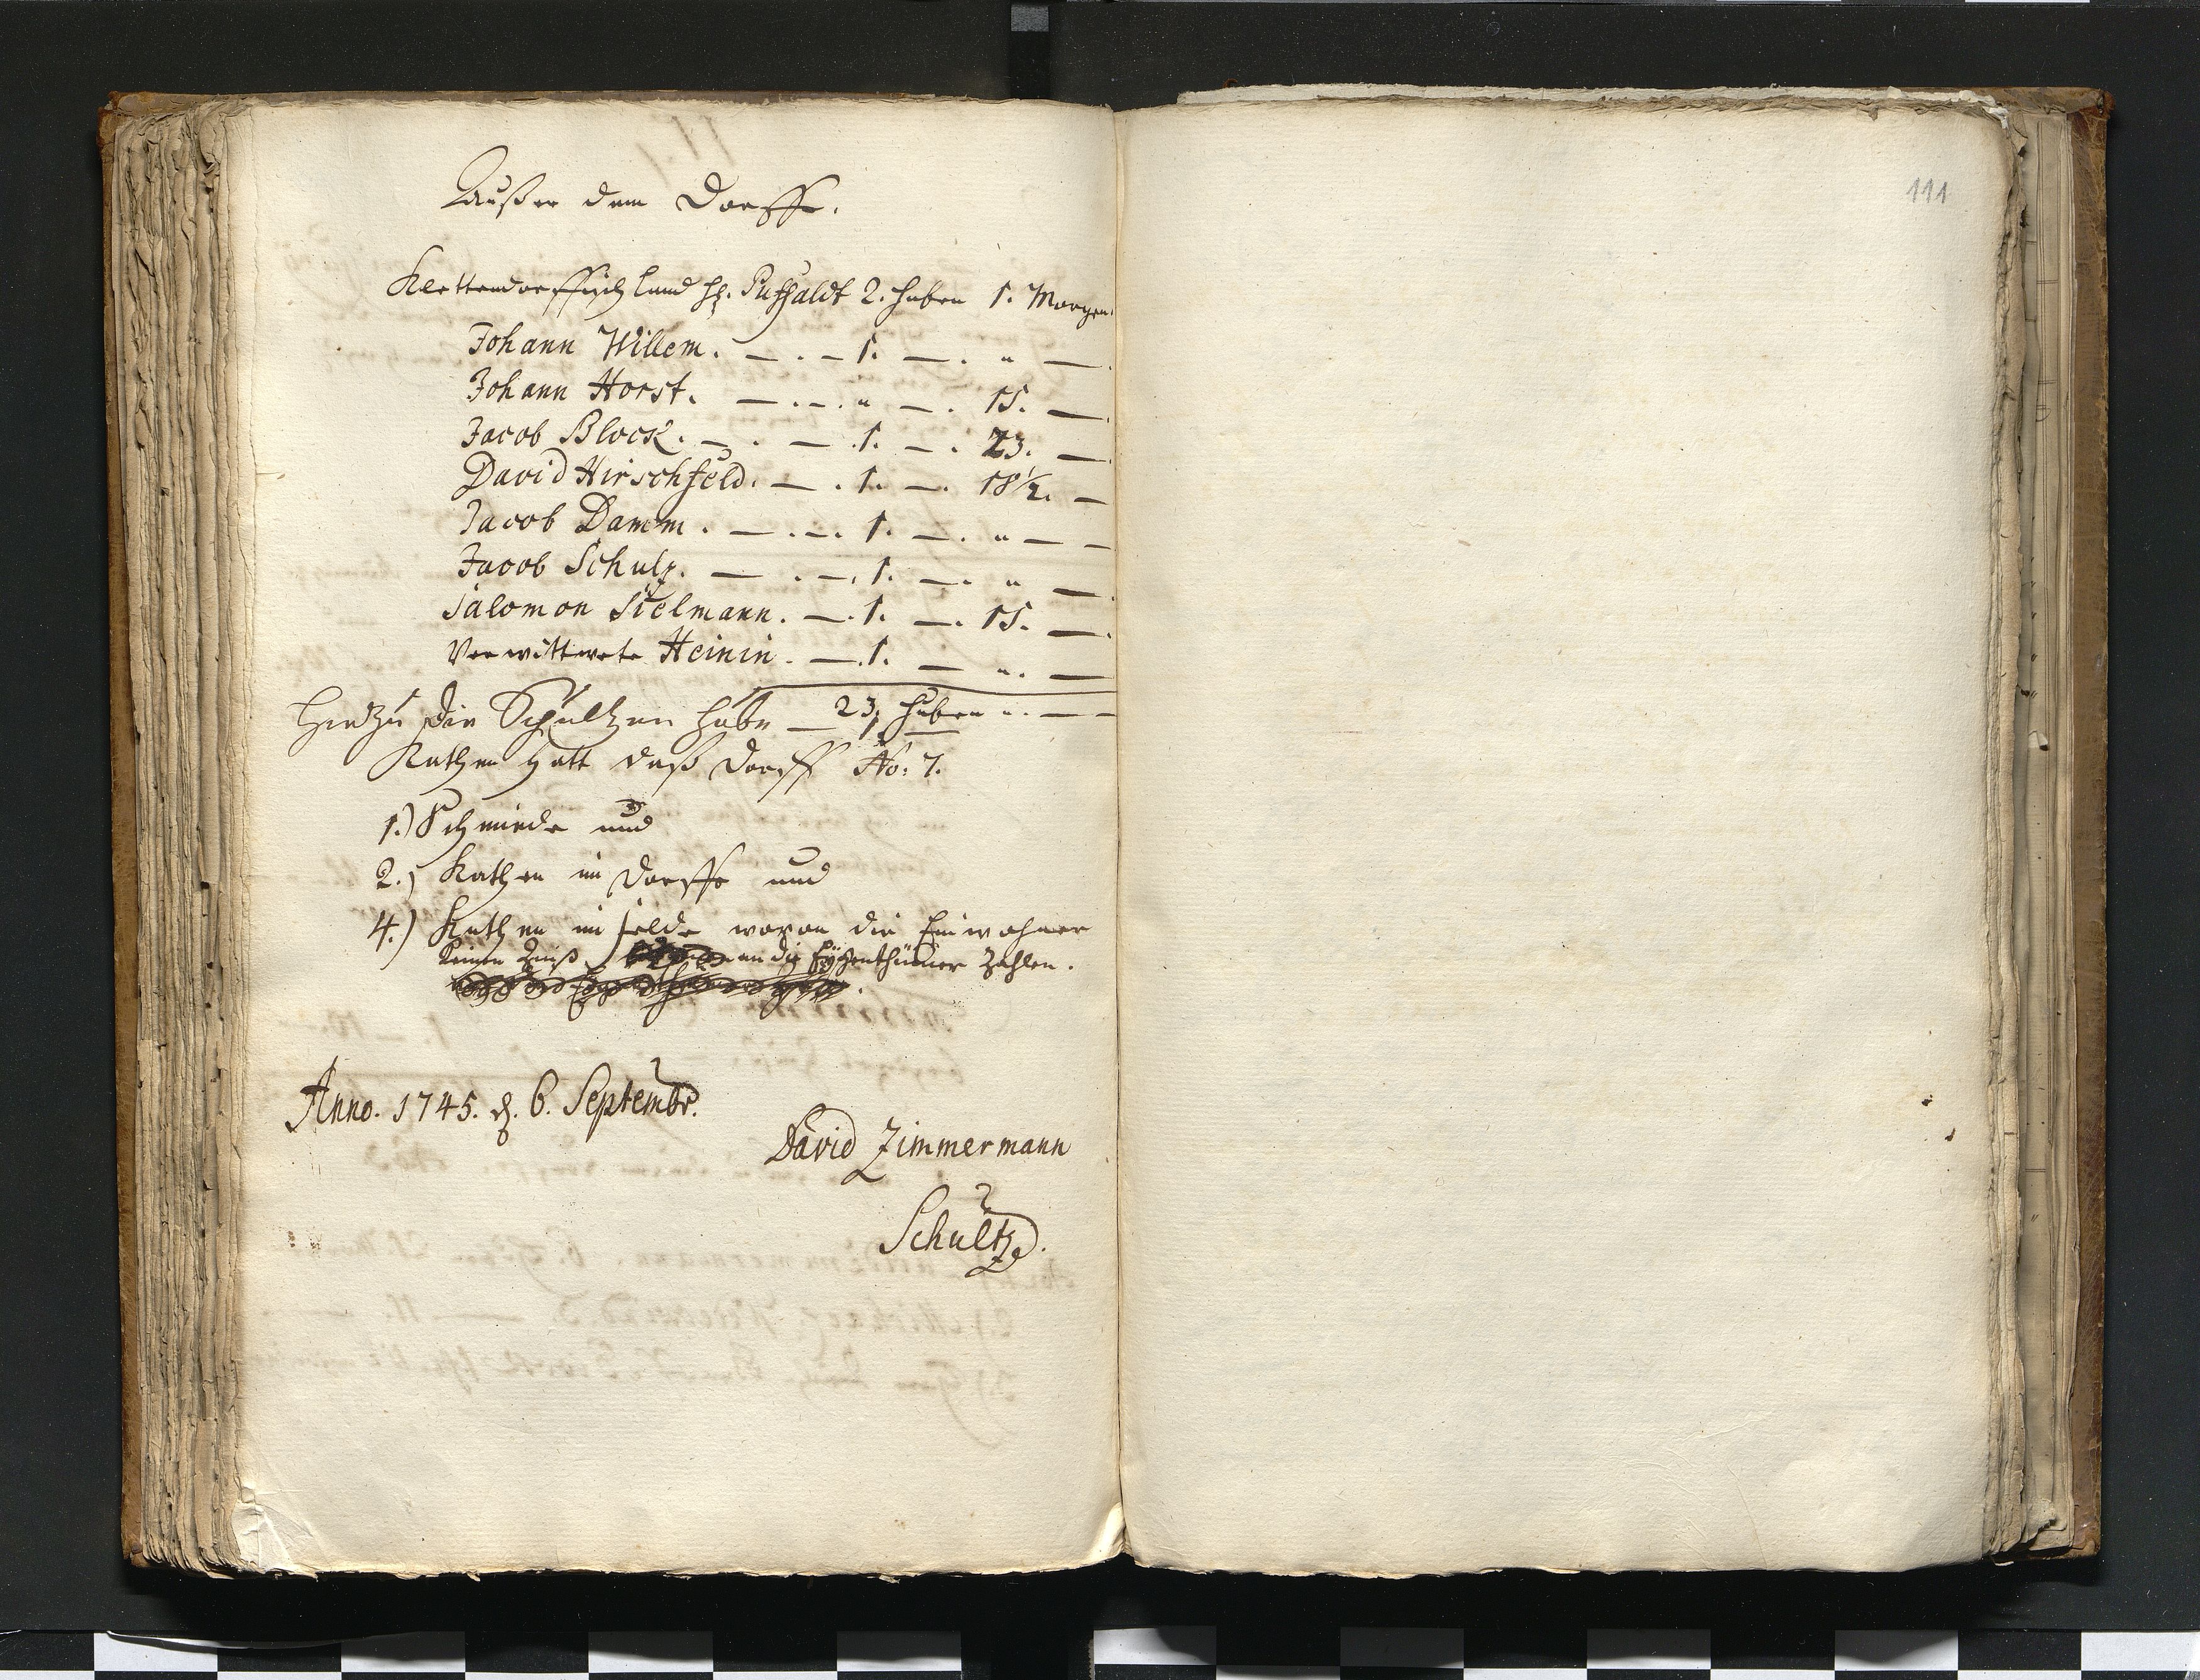 Außer dem Dorffe.
Klettendorffisch Land H. Puschaldt 2. Huben 1. Morgen.
Johann Willem. — . — 1. — . " —
Johann Horst. — . — . " — . 15. —
Jacob Block. — . — 1. — . 23. —
David Hirschfeld. — . 1. — . 18 1/2. —
Jacob Damm. — . — . 1. — . " — —
Jacob Schulz. — . — . 1. — . " —
Salomon Sielmann. — . 1. — . 15. —
Verwittwete Heinin. — . 1. — ". —
Hirzu die Schultzen Hube — 23 Huben " . — —
Kathen hatt daß Dorff No: 7.
1.) Schmiede und
2.) Kathen im Dorffe und
4.) Kathen im Felde wovon die Einwohner
Keinen Zinß an die Eygenthümer Zahlen.
Anno. 1745. d. 6. Septembr.
David Zimmermann
Schultz.
111